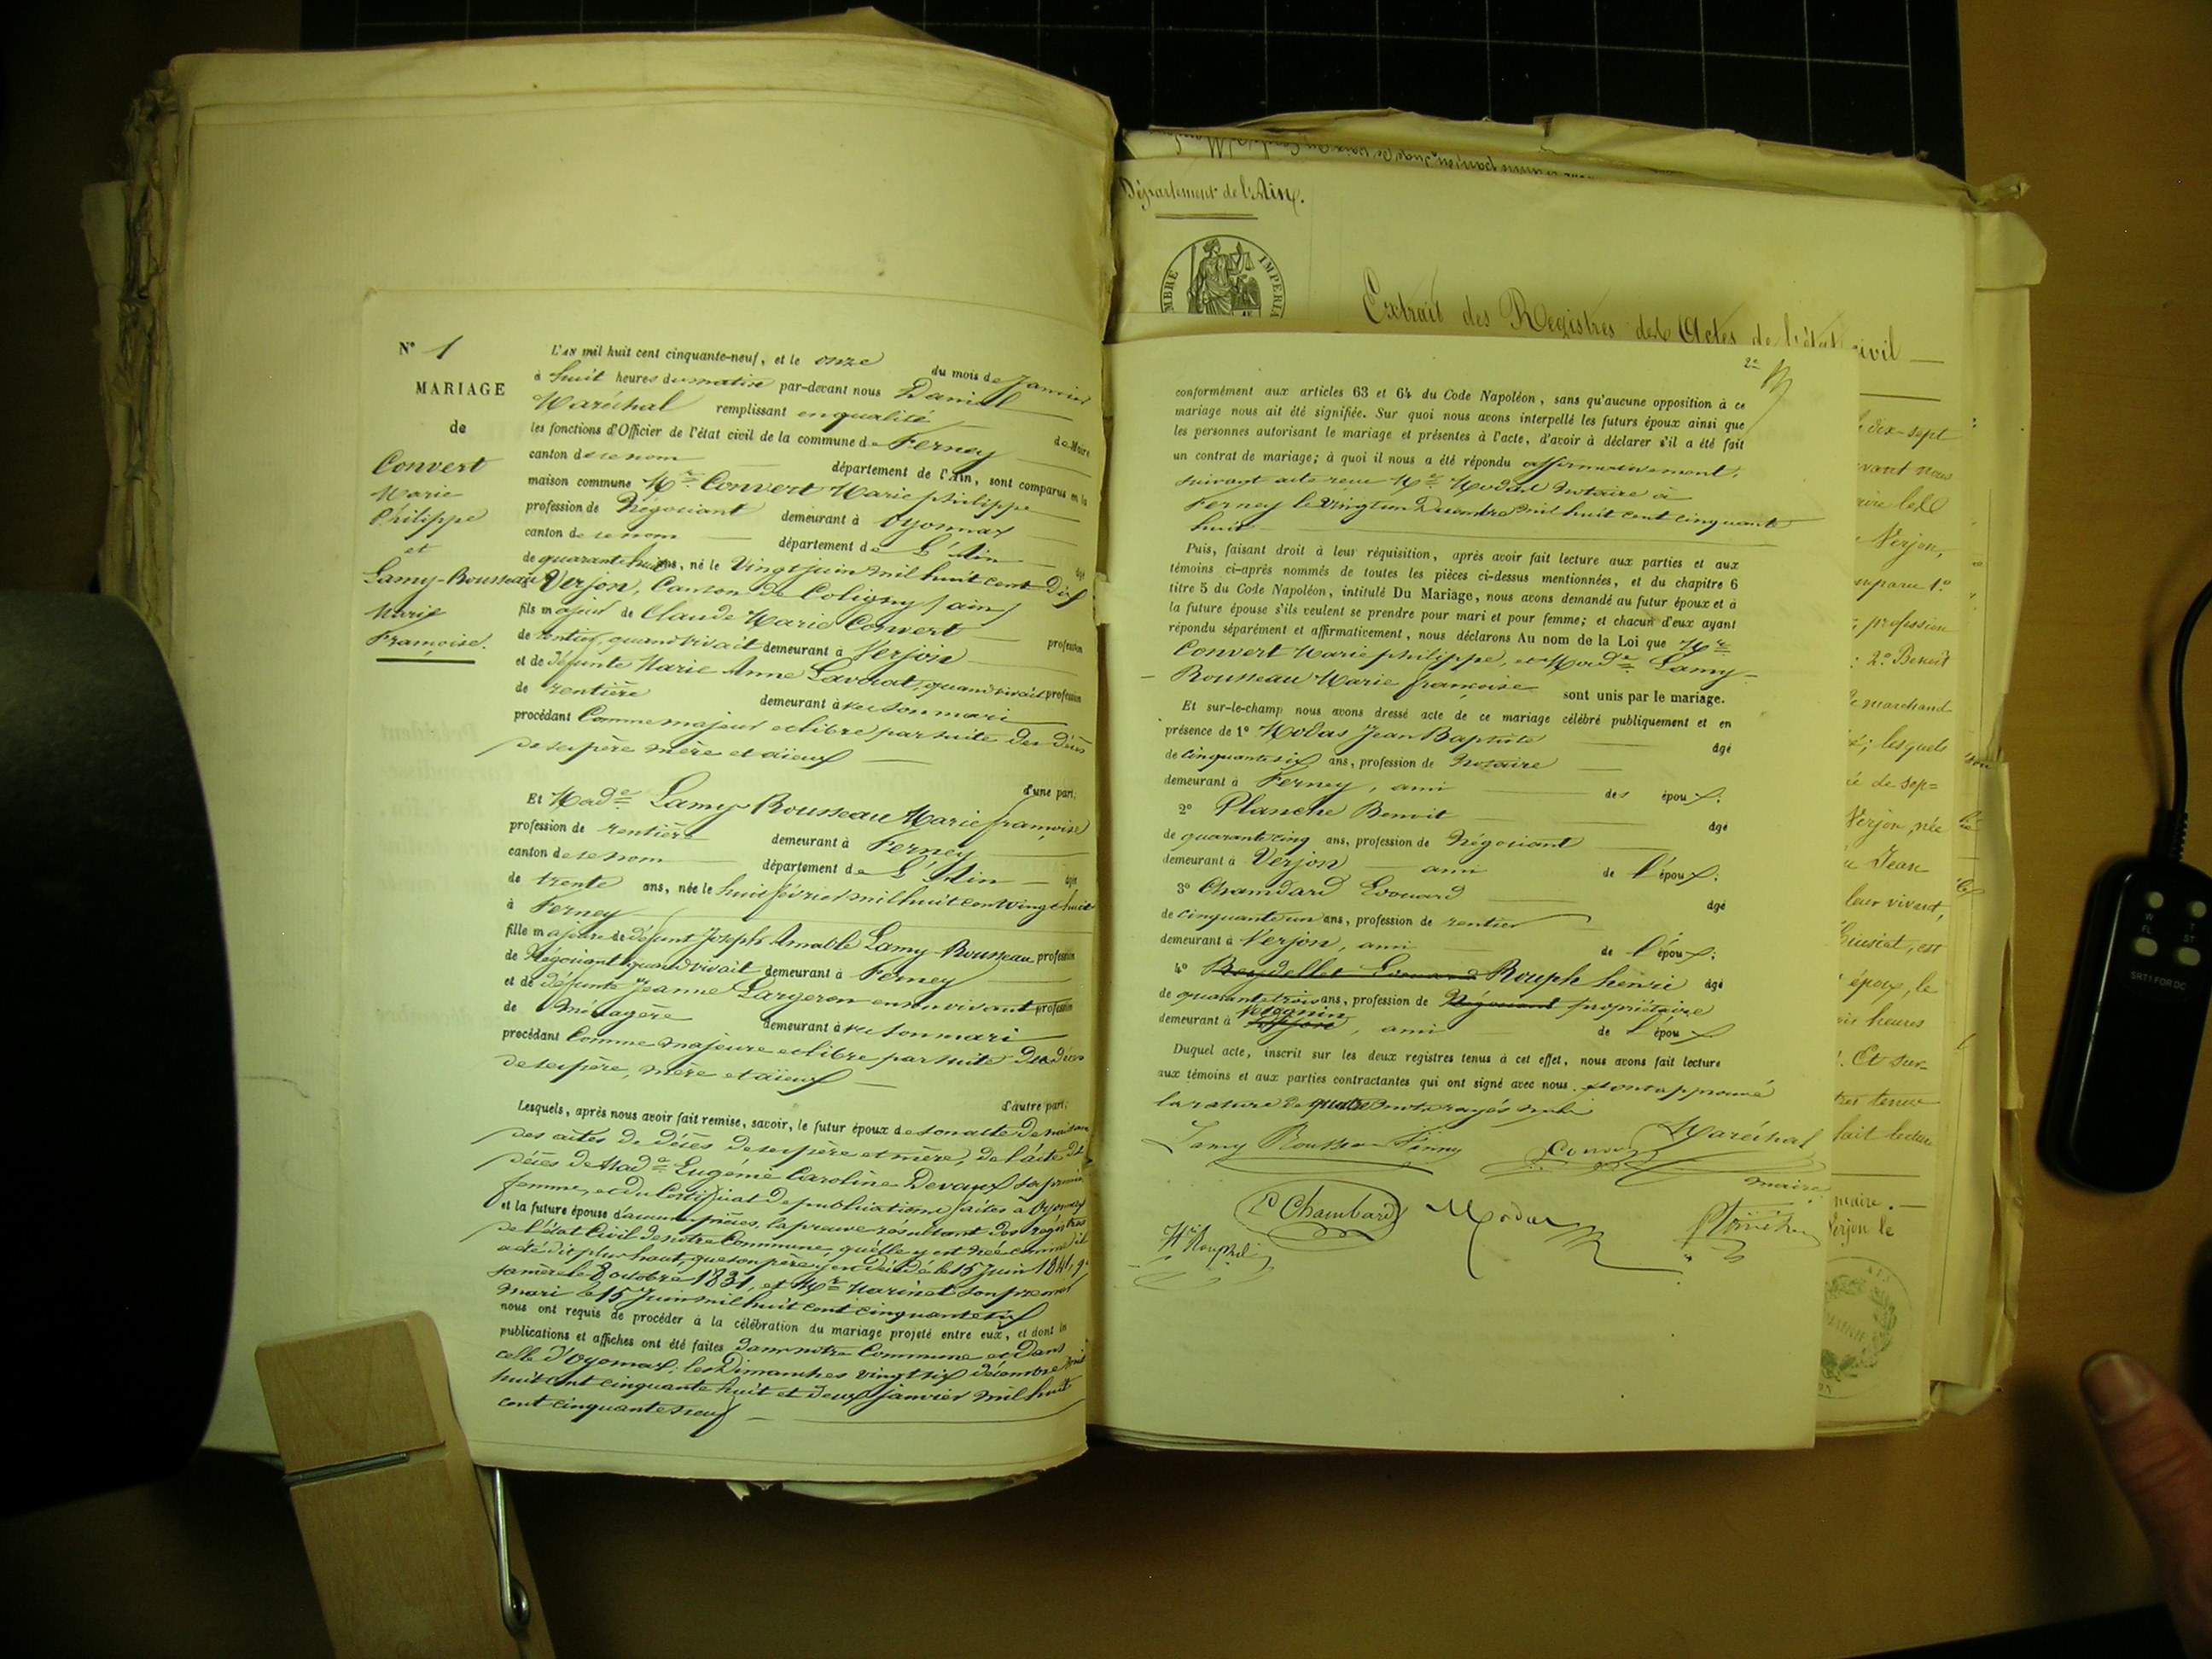 N° 1
MARIAGE
de
Convert
Marie
Philippe
et
Lamy-Rousseau
Marie
Françoise.
L'AN mil huit cent cinquante-neuf, et le onze du mois de Janvier
à huit heures du matin par-devant nous Daniel
Maréchal remplissant en qualité de Maire
les fonctions d'Officier de l'état civil de la commune de Ferney
canton de ce nom département de l'Ain, sont comparus en la
maison commune Mr Convert Marie philippe
profession de Négociant demeurant à Oyonnax
canton de ce nom département de L'Ain âgé
de quarante huit ans, né le Vingt juin mil huit cent Dix
à Verjon, Canton de Coligny (ain)
fils majeur de Claude Marie Convert profession
de rentier, quand vivait demeurant à Verjon
et de défunte Marie Anne Lavorat, quand vivait profession
de rentière demeurant à avec son mari
procédant Comme majeur et libre par suite des décès
de ses père mère et aïeux
d'une part;
Et Made Lamy-Rousseau Marie françoise
profession de rentière demeurant à Ferney
canton de ce nom département de L'Ain âgée
de trente ans, née le huit février mil huit cent vingt huit
à Ferney
fille majeure de défunt Joseph Amable Lamy-Rousseau profession
de Négociant quand vivait demeurant à Ferney
et de défunte Jeanne Largeron en son vivant profession
de Ménagère demeurant à avec son mari
procédant Comme majeure et libre par suite des décès
de ses père, mère et aïeux
d'autre part;
Lesquels, après nous avoir fait remise, savoir, le futur époux de son acte de naissance
des actes de décès de ses père et mère, de l'acte de
décès de Made Eugénie Caroline Devaux sa première
femme, et du Certificat de publications faites à Oyonnax
et la future épouse d'aucunes pièces, la preuve résultant des registres
de l'état Civil de notre Commune, qu'elle y est née comme il
a été dit plus haut, que son père y est décédé le 15 Juin 1841, que
sa mère le 8 octobre 1831, et Mr Marinet son premier
mari le 15 Juin mil huit cent cinquante six
nous ont requis de procéder à la célébration du mariage projeté entre eux, et dont les
publications et affiches ont été faites dans notre Commune et dans
celle d'Oyonnax, les Dimanches vingt six décembre mil
huit cent cinquante huit et deux janvier mil huit
cent cinquante neuf
Département de l'Ain.
TIMBRE IMPERIAL
Extrait des Registres des Actes de l'état civil
2e
conformément aux articles 63 et 64 du Code Napoléon, sans qu'aucune opposition à ce
mariage nous ait été signifiée. Sur quoi nous avons interpellé les futurs époux ainsi que
les personnes autorisant le mariage et présentes à l'acte, d'avoir à déclarer s'il a été fait
un contrat de mariage; à quoi il nous a été répondu affirmativement,
suivant acte reçu Me Modas Notaire à
Ferney le vingt un Décembre mil huit cent cinquante
huit
Puis, faisant droit à leur réquisition, après avoir fait lecture aux parties et aux
témoins ci-après nommés de toutes les pièces ci-dessus mentionnées, et du chapitre 6
titre 5 du Code Napoléon, intitulé Du Mariage, nous avons demandé au futur époux et à
la future épouse s'ils veulent se prendre pour mari et pour femme; et chacun d'eux ayant
répondu séparément et affirmativement, nous déclarons Au nom de la Loi que Mr
Convert Marie philippe, et Made Lamy-
Rousseau Marie françoise sont unis par le mariage.
Et sur-le-champ nous avons dressé acte de ce mariage célébré publiquement et en
présence de 1° Modas Jean Baptiste âgé
de cinquante six ans, profession de Notaire
demeurant à Ferney, ami des époux.
2° Planche Benoit âgé
de quarante cinq ans, profession de Négociant
demeurant à Verjon ami de l'époux.
3° Chambard Edouard âgé
de cinquante un ans, profession de rentier
demeurant à Verjon, ami de l'époux.
4° Rouph henri âgé
de quarante trois ans, profession de Négociant propriétaire
demeurant à ami de l'époux
Duquel acte, inscrit sur les deux registres tenus à cet effet, nous avons fait lecture
aux témoins et aux parties contractantes qui ont signé avec nous. et ont approuvé
la rature de quatre mots rayés nuls
Lamy Rousseau Convert Maréchal
maire
Chambard Modas
Hri Rouph
dix-sept
vant nous
Verjon,
comparu 1°
profession
2° Benoit
marchand
lesquels
de sep=
Verjon, née
Jean
leur vivant,
est
époux, le
heures
Et sur-
tenus
fait lecture
maire.
Verjon le
SRT1 FOR DC